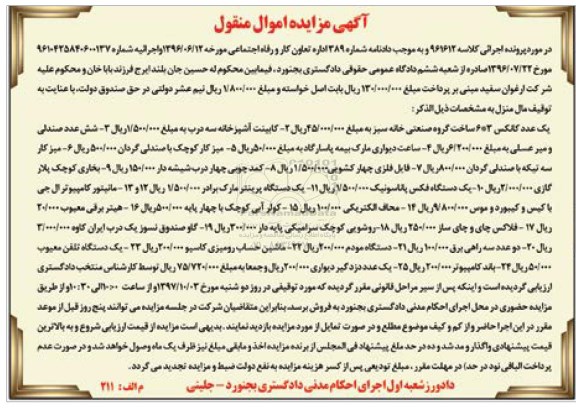 آگهی مزایده اموال منقول
در مورد پرونده اجرائی کلاسه ۹۶۱۶۱۲ و به موجب دادنامه شماره ۳۸۹ اداره تعاون کار و رفاه اجتماعی مورخه ۱۳۹۶/۰۶/۱۲ واجرائیه شماره ۹۶۱۰۴۲۵۸۴۰۶۰۰۱۳۷
مورخ ۱۳۹۶/۰۷/۲۲ صادره از شعبه ششم دادگاه عمومی حقوقی دادگستری بجنورد ، فیمابین محکوم له حسین جان بلند ایرج فرزند باباخان و محکوم علیه
شرکت ارغوان سفید مبنی بر پرداخت مبلغ ۱۳۰/۰۰۰/۰۰۰ ریال بابت اصل خواسته و مبلغ ۱/۸۰۰/۰۰۰ ریال نیم عشر دولتی در حق صندوق دولت، با عنایت به
توقیف مال منزل به مشخصات ذیل الذکر :
یک عدد کانکس ۳*۶ ساخت گروه صنعتی خانه سبز به مبلغ ۴۵/۰۰۰/۰۰۰ ریال ۲- کابینت آشپزخانه سه درب به مبلغ ۱/۵۰۰/۰۰۰ ریال ۳- شش عدد صندلی
و میر عسلی به مبلغ ۶/۲۰۰/۰۰۰ ریال ۴- ساعت دیواری مارک بیمه پاسارگاد به مبلغ ۵۰/۰۰۰ ریال ۵- میز کار کوچک با صندلی گردان ۵۰۰/۰۰۰ ریال ۶- میز کار
سه تیکه با صندلی گردان ۸۰۰/۰۰۰ ریال ۷- فایل فلزی چهار کشویی ۱/۵۰۰/۰۰۰ ریال ۸- کمد چوبی چهار درب شیشه دار ۱۵۰/۰۰۰ ریال ۹- بخاری کوچک پلار
گازی ۲/۰۰۰/۰۰۰ ریال ۱۰- یک دستگاه فکس پاناسونیک ۱/۵۰۰/۰۰۰ ریال ۱۱- یک دستگاه پرینتر مارک برادر ۱/۵۰۰/۰۰۰ ریال ۱۲ و ۱۳- مانیتور کامپیوتر ال جی
با کیس و کیبورد و موس ۹/۸۰۰/۰۰۰ ریال ۱۴- محاف الکتریکی ۱۰/۰۰۰ ریال ۱۵- کولر آبی کوچک با چهار پایه ۵۰۰/۰۰۰ ریال ۱۶- هیتر برقی معیوب ۲۰/۰۰۰
ریال ۱۷- فلاکس چای و چای ساز ۲۵۰/۰۰۰ ریال ۱۸- روشویی کوچک سرامیکی پایه دار ۳۰۰/۰۰۰ ریال ۱۹- گاو صندوق نسوز یک درب ایران کاوه ۳/۰۰۰/۰۰۰
ریال ۲۰- دو عدد سه راهی برق ۱۰۰/۰۰۰ ریال ۲۱- دستگاه مودم ۲۰۰/۰۰۰ ریال ۲۲- ماشین حساب رومیزی کاسیو ۲۰۰/۰۰۰ ریال ۲۳- یک دستگاه تلفن معیوب
۵۰/۰۰۰ ریال ۲۴- باند کامپیوتر ۲۰۰/۰۰۰ ریال ۲۵- یک عدد دزدگیر دیواری ۲۰۰/۰۰۰ ریال و جمعا به مبلغ ۷۵/۷۲۰/۰۰۰ ریال توسط کارشناس منتخب دادگستری
ارزیابی گردیده است و اینکه پس از سیر مراحل قانونی مقرر گردیده که مورد توقیفی در روز دو شنبه مورخ ۱۳۹۷/۱۰/۰۳ و از ساعت ۱۰:۰۰ الی ۱۰:۳۰ و از طریق
مزایده حضوری در محل اجرای احکام مدنی دادگستری بجنورد به فروش برسد، بنابراین متقاضیان شرکت در جلسه مزایده می توانند پنج روز قبل از موعد
مقرر در این اجرا حاضر و از کم و کیف موضوع مطلع و در صورت تمایل از مورد مزایده بازدید نمایند . بدیهی است مزایده از قیمت ارزیابی شروع و به بالاترین
قیمت پیشنهادی واگذار و مد شد و ده در حد ملغ پیشنهاد فی المجلس از برنده مزایده اخذ و مابقی مبلغ نیز ظرف یک ماه وصول خواهد شد و در صورت عدم
پرداخت الباقی نود در حد/ در مهلت مقرر ، مبلغ تودیعی پس از کسر هزینه مزایده به نفع دولت ضبط و مزایده تجدید می گردد.
دادورز شعبه اول اجرای احکام مدنی دادگستری بجنورد - جلیتی
م الف : ۲۱۱